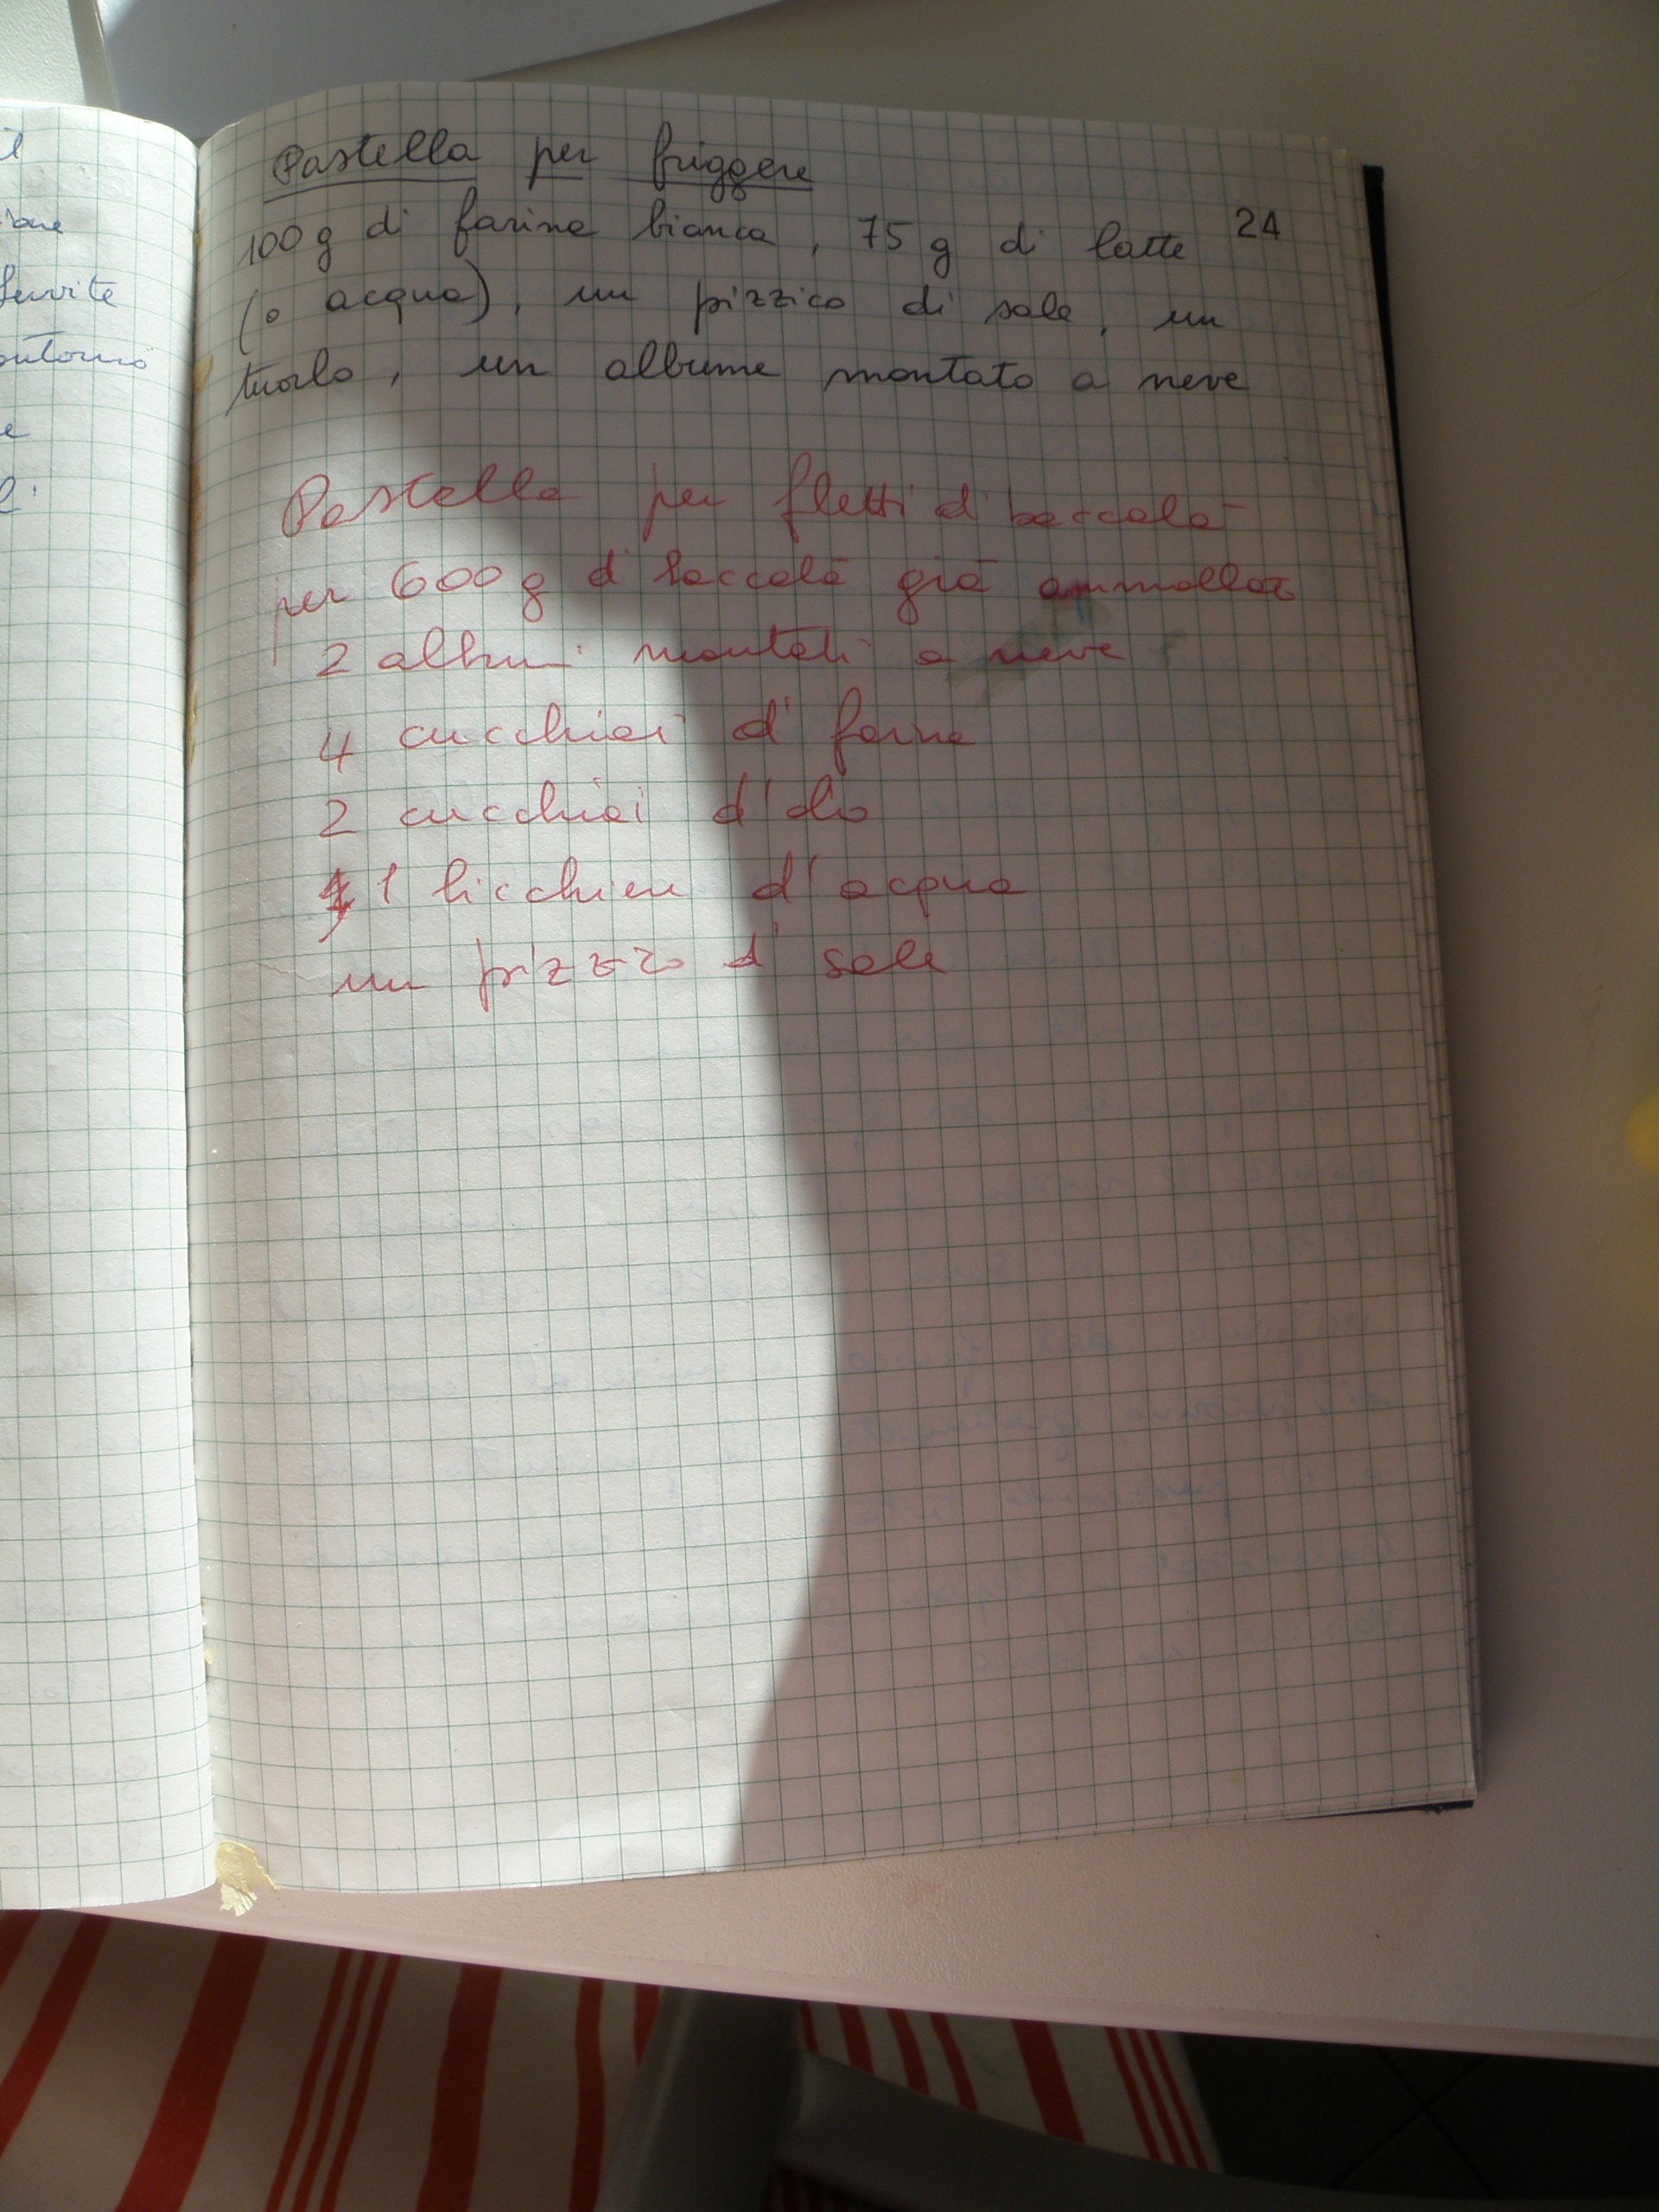 Pastella per friggere
24
100 g di farina bianca, 75 g di latte
(o acqua), un pizzico di sale, un
tuorlo, un albume montato a neve
Pastella per filetti di baccalà
per 600 g di baccalà già ammollato
2 albumi montati a neve
4 cucchiai di farina
2 cucchiai d'olio
1 bicchiere d'acqua
un pizzico di sale
il
ferite
contorno
e